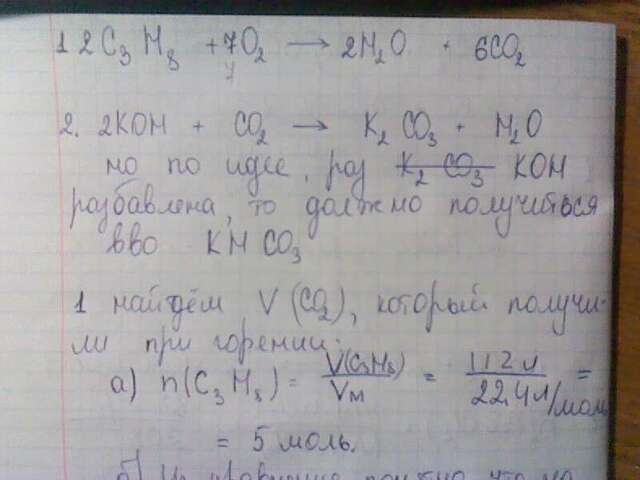 1 2C₃H₈ + 7O₂ → 2H₂O + 6CO₂
7
2. 2KOH + CO₂ → K₂CO₃ + H₂O
но по идее, раз K₂CO₃ KOH
разбавлена, то должно получиться
вво KHCO₃
1 найдём V(CO₂), который получи-
ли при горении:
а) n(C₃H₈) = V(C₃H₈)/Vм = 112 л/22,4 л/моль =
= 5 моль.